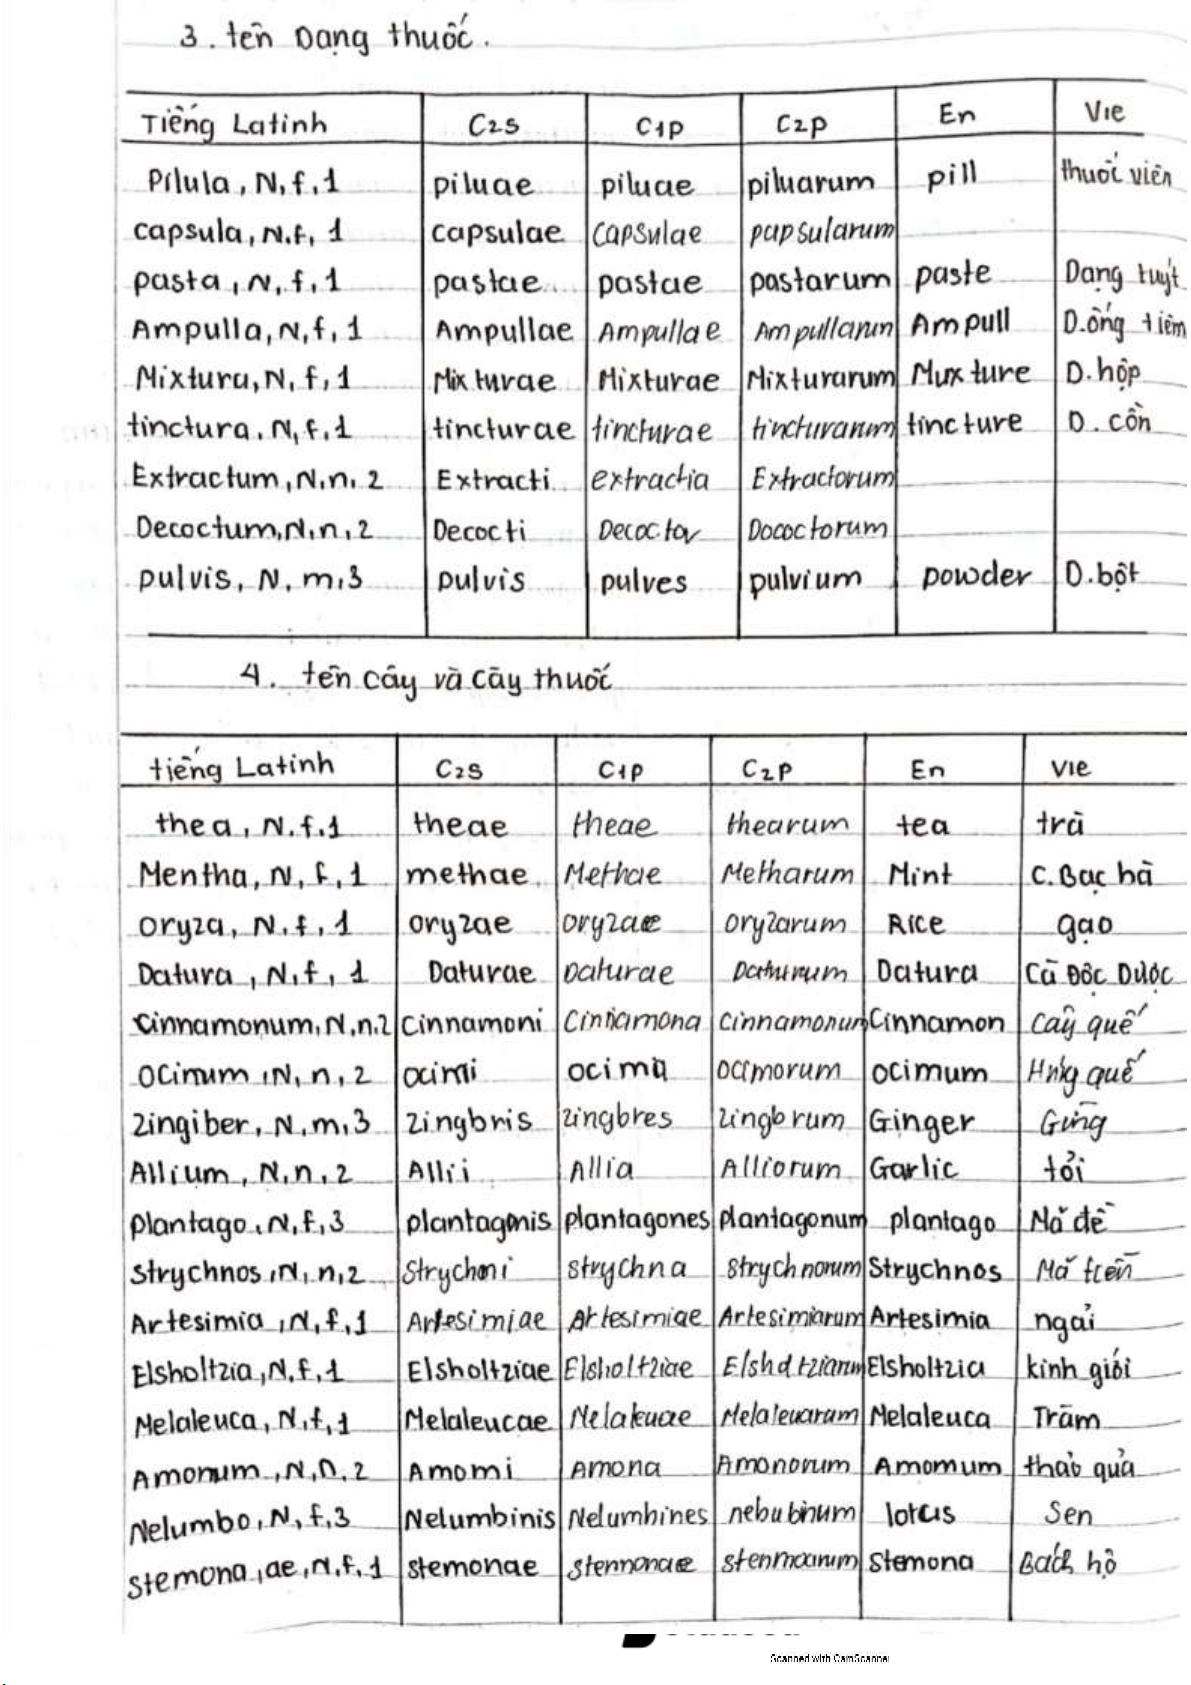 3. tên Dạng thuốc.
Tiếng Latinh C2S C1P C2P En Vie
Pilula, N, f, 1 piluae piluae piluarum pill thuốc viên
capsula, N.f, 1 capsulae capsulae papsularum
pasta, N, f, 1 pastae pastae pastarum paste Dạng tuýt
Ampulla, N, f, 1 Ampullae Ampullae Ampullarum Ampull D.ống tiêm
Mixtura, N, f, 1 Mixturae Mixturae Mixturarum Muxture D.hộp
tinctura, N, f, 1 tincturae tincturae tincturarum tincture D. cồn
Extractum, N, n, 2 Extracti extractia Extractorum
Decoctum, N, n, 2 Decocti Decocta Dococtorum
pulvis, N, m, 3 pulvis pulves pulvium powder D.bột
4. tên cây và cây thuốc
tiếng Latinh C2S C1P C2P En Vie
thea, N.f.1 theae theae thearum tea trà
Mentha, N, f, 1 methae Methae Metharum Mint C.Bạc hà
oryza, N.f, 1 oryzae oryzae oryzarum Rice gạo
Datura, N, f, 1 Daturae Daturae Datura Cà Độc Dược
Cinnamonum, N, n, 2 Cinnamoni Cinnamona Cinnamonum Cinnamon Cây quế
Ocimum, N, n, 2 ocimi ocima ocimorum ocimum quế
Zingiber, N, m, 3 Zingbris Zingbres Zingbrum Ginger Gừng
Allium, N, n, 2 Allii Allia Alliorum Garlic tỏi
plantago, N, f, 3 plantagonis plantagones plantagonum plantago Mã đề
Strychnos, N, n, 2 Strychni strychna strychnorum Strychnos Mã tiền
Artesimia, N, f, 1 Artesimiae Artesimiae Artesimiarum Artesimia ngải
Elsholtzia, N, f, 1 Elsholtziae Elsholtziae Elsholtziarum Elsholtzia kinh giới
Melaleuca, N, f, 1 Melaleucae Melaleucae Melaleucarum Melaleuca Tràm
Amonum, N, n, 2 Amomi Amona Amonorum Amomum thảo quả
Nelumbo, N, f, 3 Nelumbinis Nelumbines nebubinum lotus Sen
Stemona, ae, N, f, 1 stemonae Stemonae Stemona Bách bộ
Scanned with CamScanner